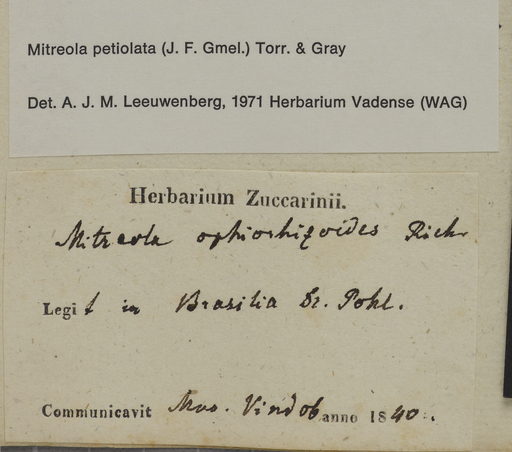 Mitreola petiolata (J. F. Gmel.) Torr. & Gray
Det. A. J. M. Leeuwenberg, 1971 Herbarium Vadense (WAG)
Herbarium Zuccarinii.
Mitreola ophiorhizoides Rich.
Legit in Brasilia Dr. Pohl.
Communicavit Mus. Vindob anno 1840.